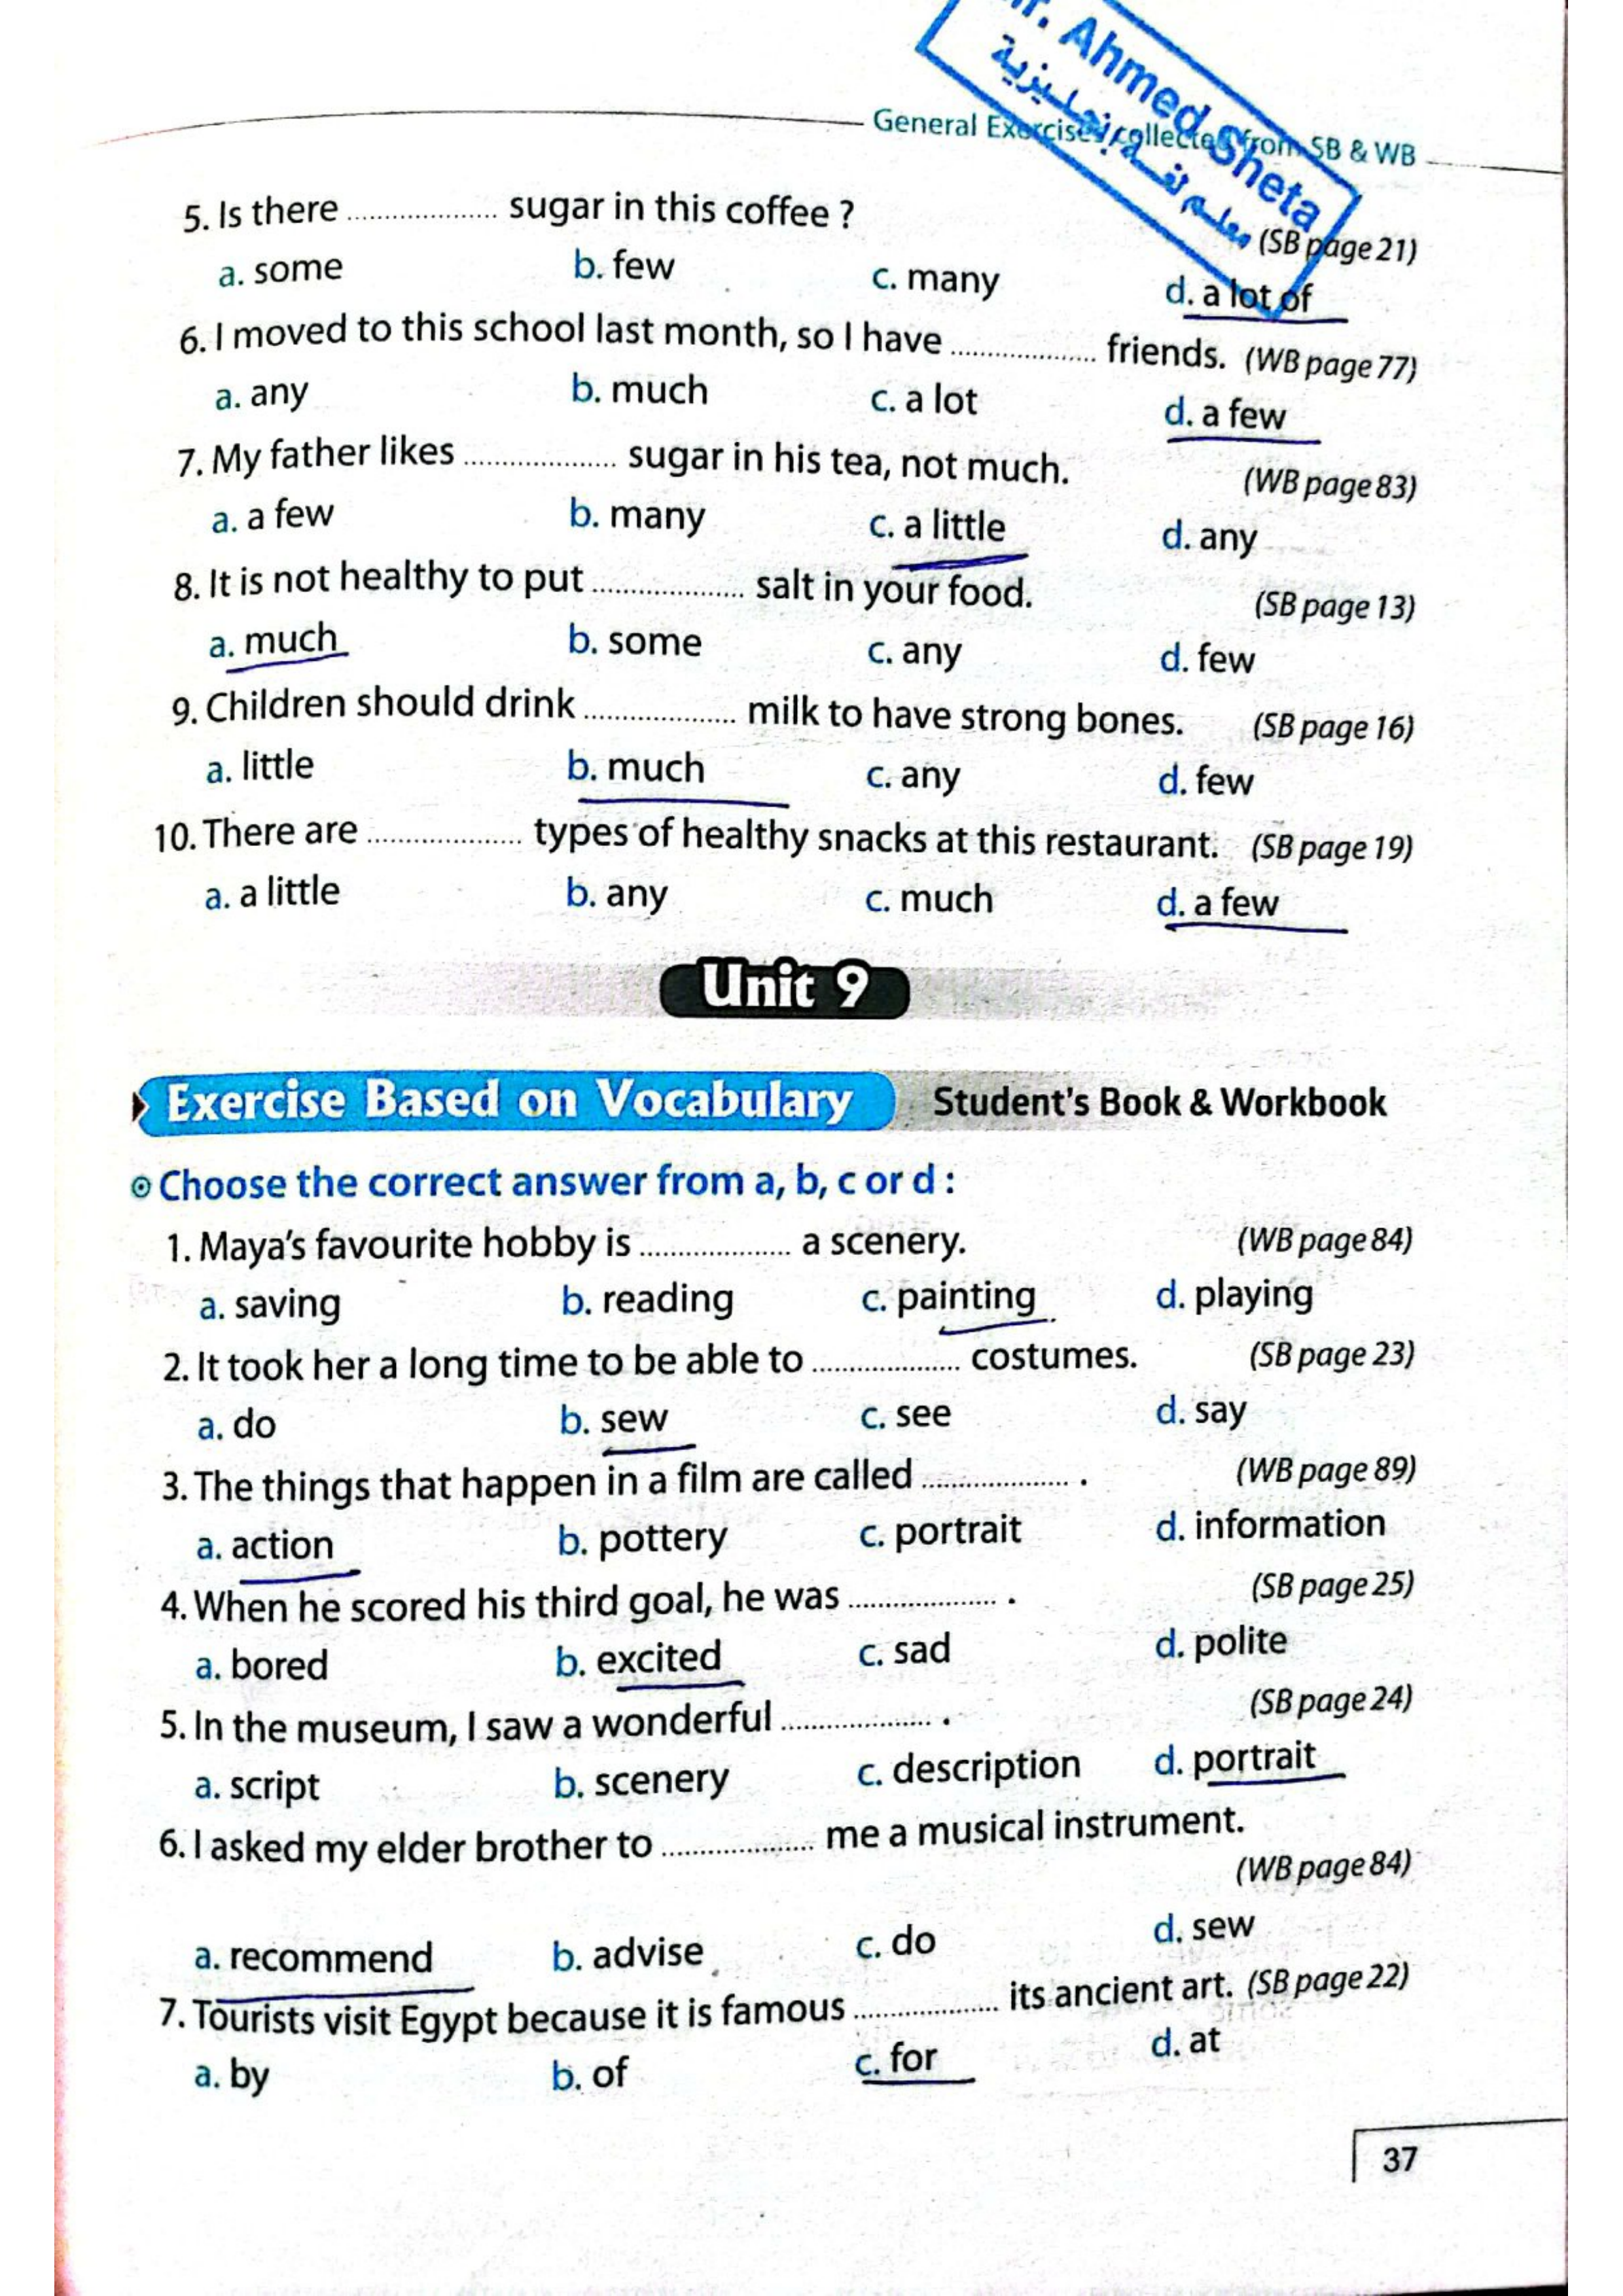 r. Ahmed Sheta
معلم لغة إنجليزية
General Exercises collected from SB & WB
5. Is there .................. sugar in this coffee ? (SB page 21)
a. some b. few c. many d. a lot of
6. I moved to this school last month, so I have .................. friends. (WB page 77)
a. any b. much c. a lot d. a few
7. My father likes .................. sugar in his tea, not much. (WB page 83)
a. a few b. many c. a little d. any
8. It is not healthy to put .................. salt in your food. (SB page 13)
a. much b. some c. any d. few
9. Children should drink .................. milk to have strong bones. (SB page 16)
a. little b. much c. any d. few
10. There are .................. types of healthy snacks at this restaurant. (SB page 19)
a. a little b. any c. much d. a few
Unit 9
Exercise Based on Vocabulary Student's Book & Workbook
Choose the correct answer from a, b, c or d :
1. Maya's favourite hobby is .................. a scenery. (WB page 84)
a. saving b. reading c. painting d. playing
2. It took her a long time to be able to .................. costumes. (SB page 23)
a. do b. sew c. see d. say
3. The things that happen in a film are called .................. . (WB page 89)
a. action b. pottery c. portrait d. information
4. When he scored his third goal, he was .................. . (SB page 25)
a. bored b. excited c. sad d. polite
5. In the museum, I saw a wonderful .................. . (SB page 24)
a. script b. scenery c. description d. portrait
6. I asked my elder brother to .................. me a musical instrument.
(WB page 84)
a. recommend b. advise c. do d. sew
7. Tourists visit Egypt because it is famous .................. its ancient art. (SB page 22)
a. by b. of c. for d. at
37